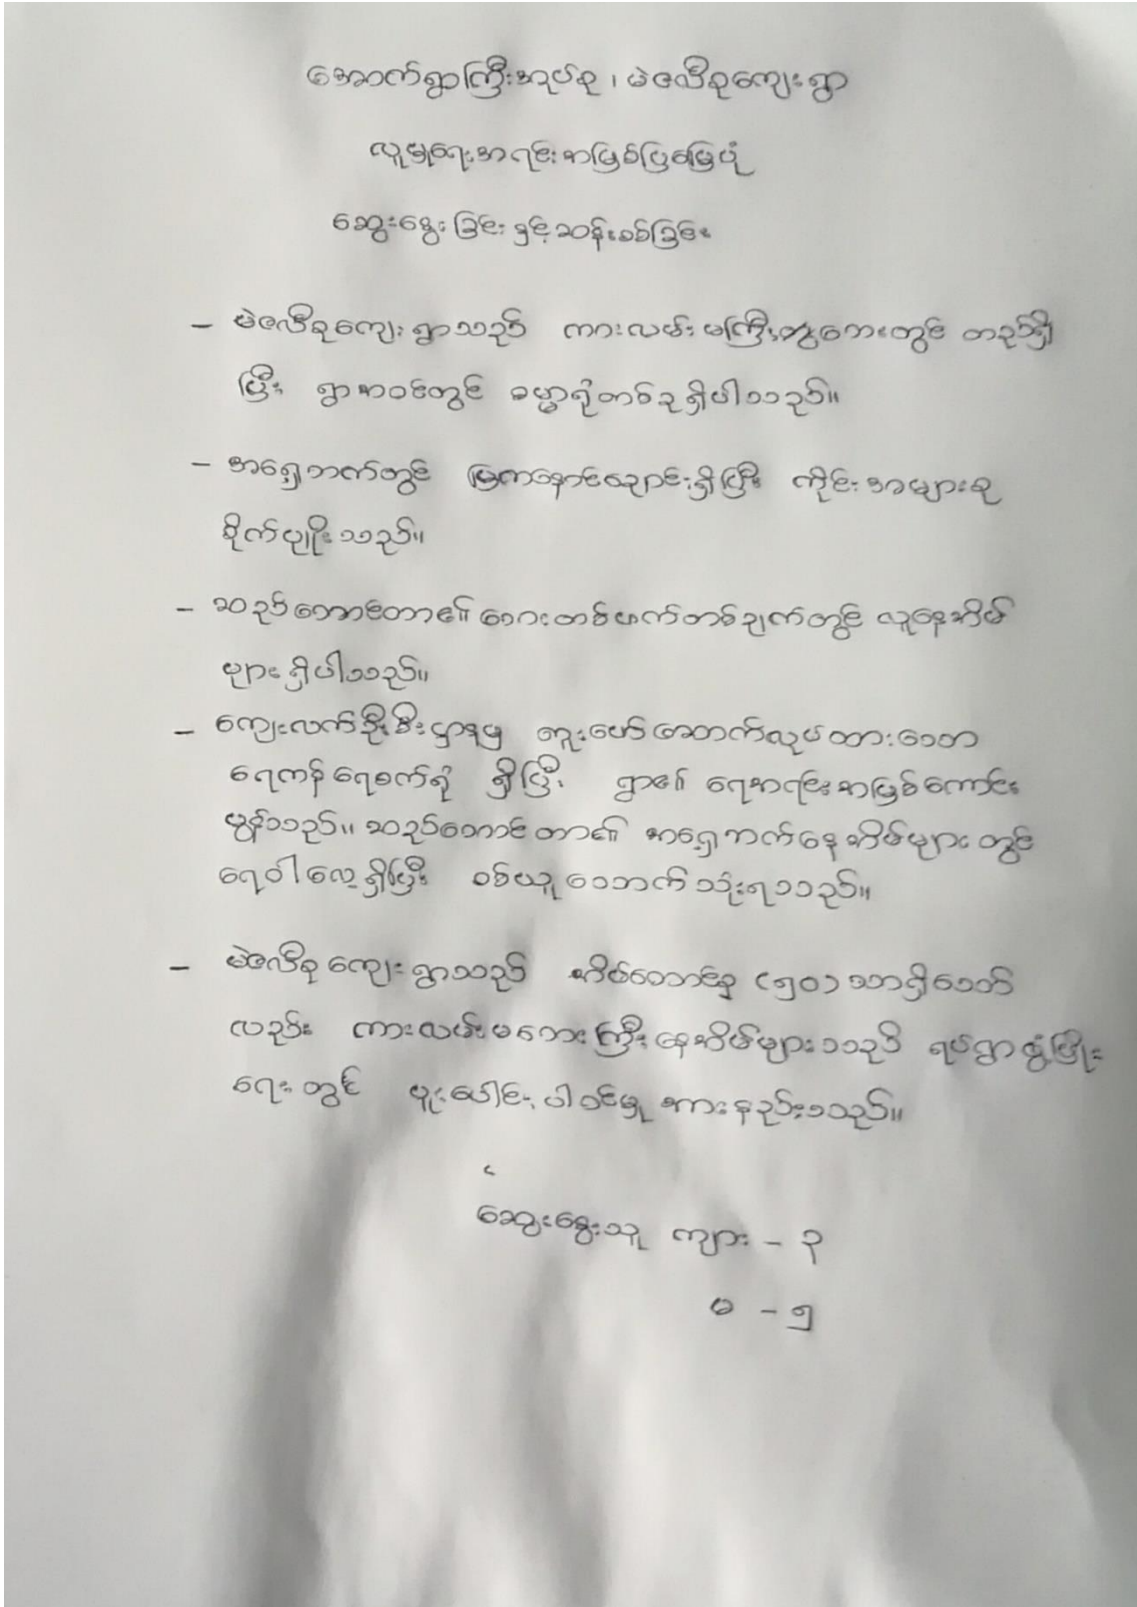 အောက်ရွာကြီးအုပ်စု ၊ မဲဇလီစုကျေးရွာ
လူမှုရေးအရင်းအမြစ်ပြမြေပုံ
ဆွေးနွေးခြင်းနှင့်ဆန်းစစ်ခြင်း
– မဲဇလီစုကျေးရွာသည် ကားလမ်းမကြီးဘေးတွင် တည်ရှိ
ပြီး ရွာအဝင်တွင် ဓမ္မာရုံတစ်ခုရှိပါသည်။
– အရှေ့ဘက်တွင် မြကနောင်ချောင်းရှိပြီး ကိုင်းအများစု
စိုက်ပျိုးသည်။
– ဆည်တောင်တာ၏ ဘေးတစ်ဖက်တစ်ချက်တွင် လူနေအိမ်
များရှိပါသည်။
– ကျေးလက်ဦးစီးဌာနမှ တူးဖော်ဆောက်လုပ်ထားသော
ရေကန်ရေစက်ရုံ ရှိပြီး ရွာ၏ ရေအရင်းအမြစ်ကောင်း
မွန်သည်။ ဆည်တောင်တာ၏ အရှေ့ဘက်နေအိမ်များတွင်
ရေဝါလေ့ရှိပြီး စစ်ယူသောက်သုံးရသည်။
– မဲဇလီစုကျေးရွာသည် အိမ်ထောင်စု (၅၀) သာရှိသော်
လည်း ကားလမ်းမဘေးကြီးနေအိမ်များသည် ရပ်ရွာဖွံ့ဖြိုး
ရေးတွင် ပူးပေါင်းပါဝင်မှု အားနည်းသည်။
ဆွေးနွေးသူ ကျား – ၃
မ – ၅